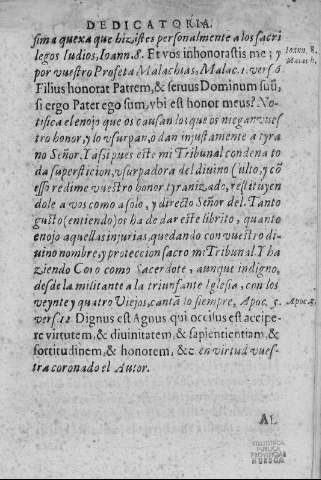 DEDICATORIA.
sima quexa que hizistes personalmente a los sacri
legos Iudios, Ioann. 8. Et vos inhonorastis me; y
Ioann. 8.
por vuestro Profeta Malachias, Malac. 1. vers. 6.
Malach.
Filius honorat Patrem, & seruus Dominum suũ,
si ergo Pater ego sum, vbi est honor meus? No-
tifica el enojo que os causan los que os niegan vues
tro honor, y lo vsurpan, o dan injustamente a tyra
no Señor. Y assi pues este mi Tribunal condena to
da supersticion, vsurpadora del diuino Culto, y cõ
esso redime vuestro honor tyranizado, restituyen
dole a vos como a solo, y directo Señor del. Tanto
gusto (entiendo) os ha de dar este librito, quanto
enojo aquellas injurias, quedando con vuestro di-
uino nombre, y proteccion sacro mi Tribunal. Y ha
ziendo Coro como Sacerdote, aunque indigno,
desde la militante a la triunfante Iglesia, con los
veynte y quatro Viejos, cantã lo siempre, Apoc. 5.
Apoc. 5.
vers. 12. Dignus est Agnus qui occisus est accipe-
re virtutem, & diuinitatem, & sapientientiam, &
fortitudinem, & honorem, &c en virtud vues-
tra coronado el Autor.
AL
BIBLIOTECA
PUBLICA
PROVINCIAL
HUESCA